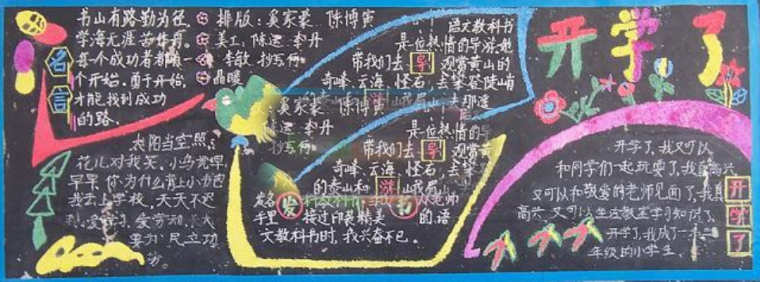 书山有路勤为径
学海无涯苦作舟
每个成功者都有一
个开始，勇于开始，
才能找到成功
的路。
名言
排版：奚家豪 陈博寅
美工：陈运 李丹
太阳当空照，
花儿对我笑，小鸟说早
早早，你为什么背上小书包
我去上学校，天天不迟
到，爱学习，爱劳动，长大
要为人民立功
劳。
语文教科书
是位热情的导游，她
带我们去 导 观赏黄山的
奇峰、云海、怪石，去攀登陡峭
奚家豪 陈博寅
陈运 李丹
是位热情的导
带我们去 导 观赏黄
奇峰、云海、怪石，去
的泰山和
发
书
老师
手里 接过印装精美 的语
文教科书时，我兴奋不已。
开学了
开学了，我又可以
和同学们一起玩耍了，我真高兴
又可以和敬爱的老师见面了，我真
高兴，又可以坐在教室学习知识了。
开学了，我成了一名二
年级的小学生。
开学了